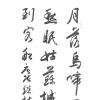 月落烏啼
愁眠姑蘇城
到客船